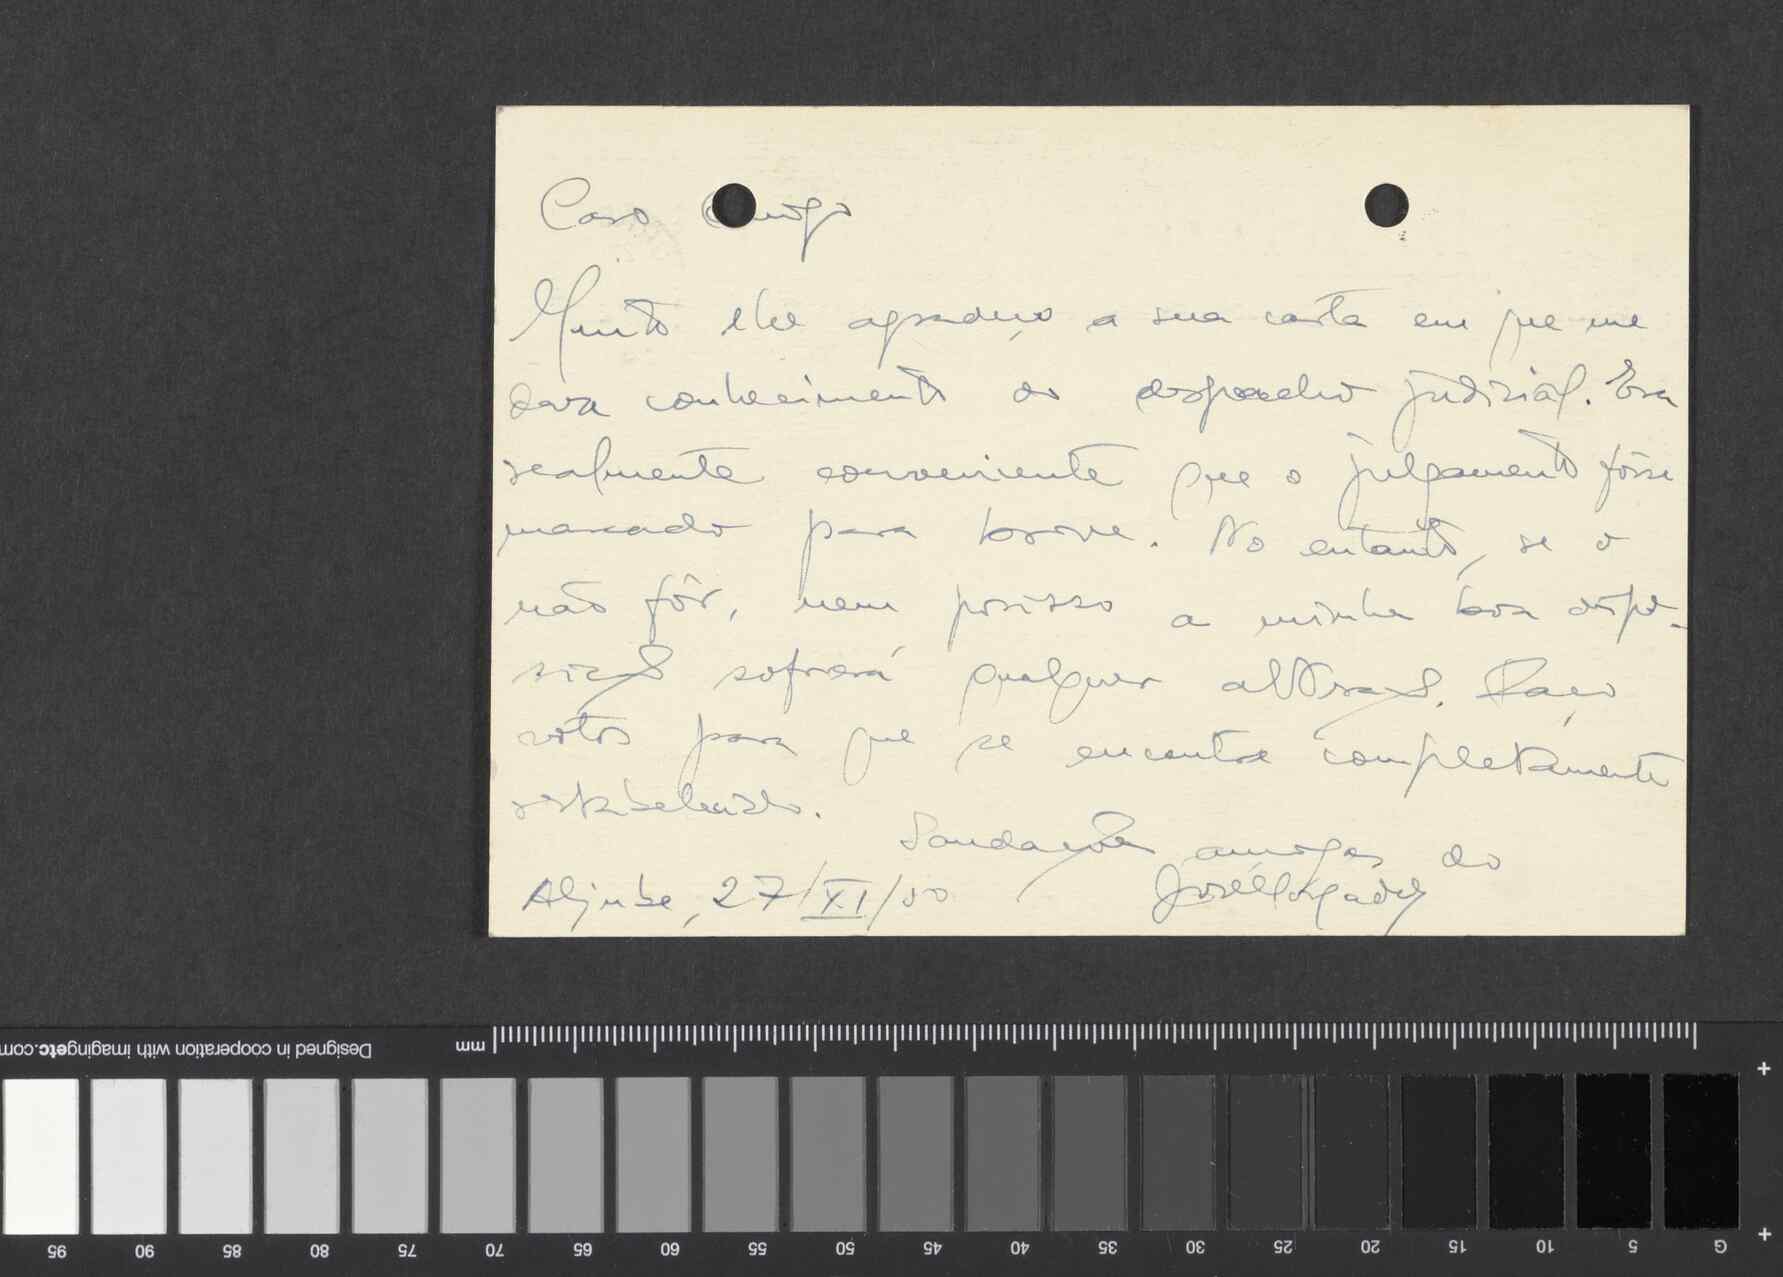 Caro Amigo
Muito lhe agradeço a sua carta em que me
dava conhecimento do despacho judicial. Era
realmente conveniente que o julgamento fôsse
marcado para breve. No entanto, se o
não fôr, nem por isso a minha boa dispo-
sição sofrerá qualquer alteração. Faço
votos para que se encontre completamente
restabelecido.
Saudações amigas do
Aljube, 27/XI/50
Designed in cooperation with imagingetc.com
mm
95 90 85 80 75 70 65 60 55 50 45 40 35 30 25 20 15 10 5 G